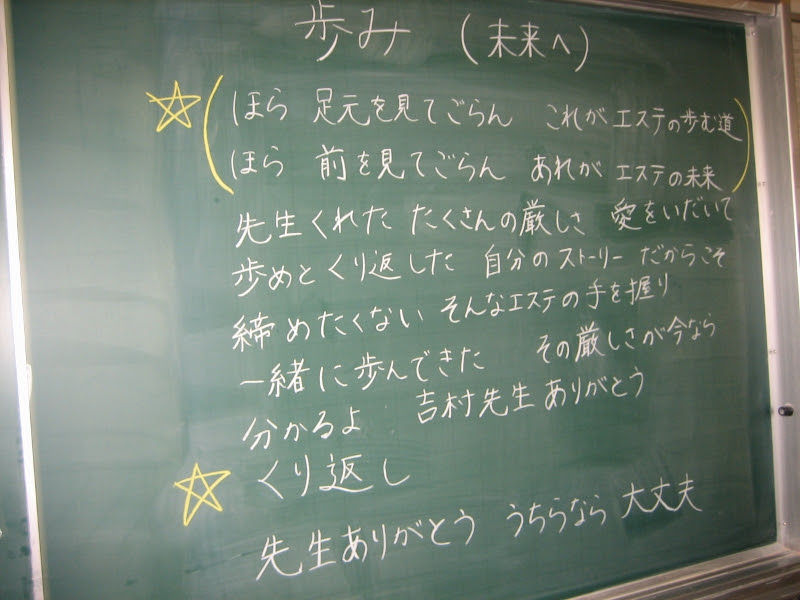 歩み (未来へ)
☆(ほら 足元を見てごらん これが エステの歩む道
ほら 前を見てごらん あれが エステの未来)
先生くれた たくさんの厳しさ 愛をいだいて
歩めと くり返した 自分のストーリー だからこそ
締めたくない そんなエステの手を握り
一緒に歩んできた その厳しさが今なら
分かるよ 吉村先生ありがとう
☆くり返し
先生ありがとう うちらなら 大丈夫